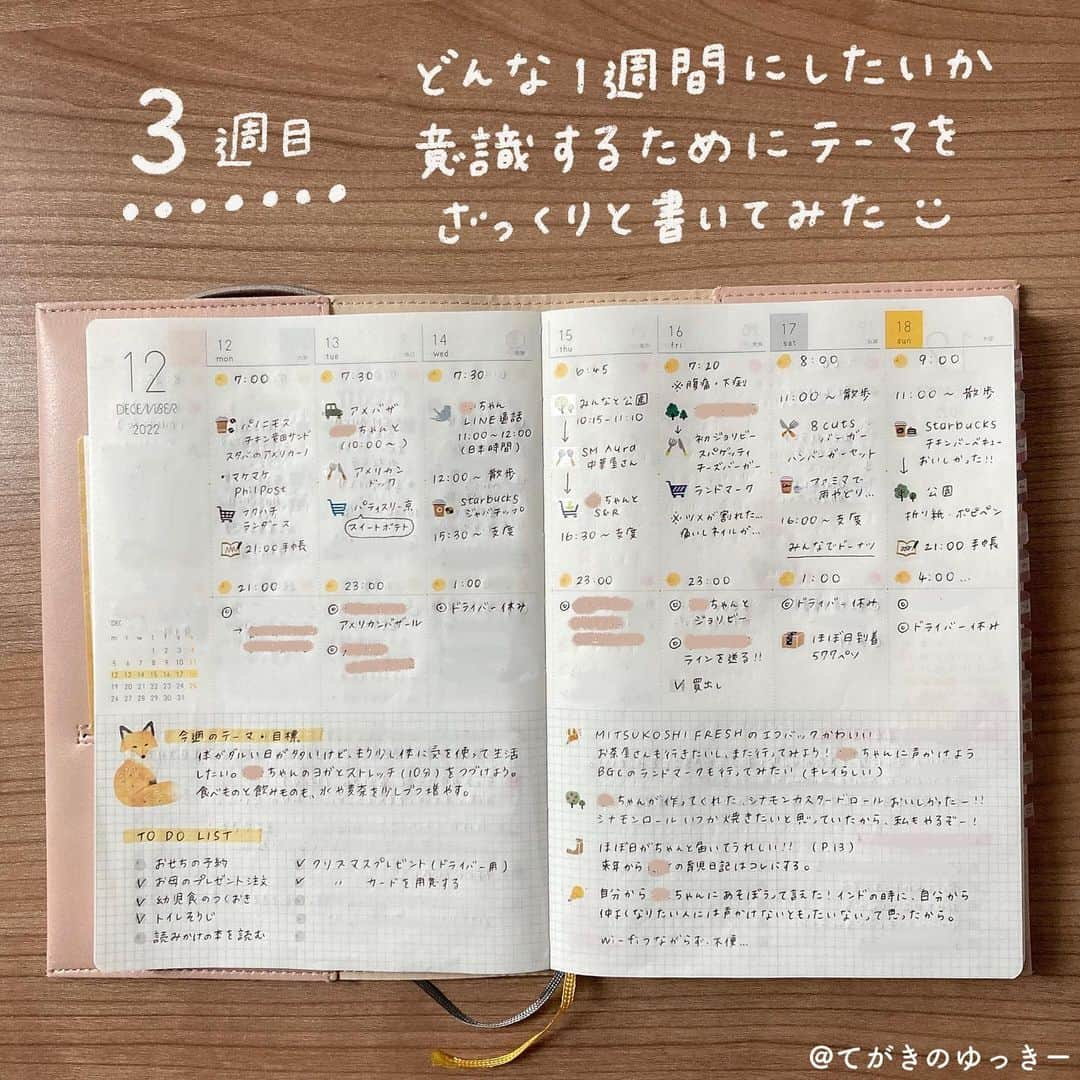 3週目
どんな1週間にしたいか
意識するためにテーマを
ざっくりと書いてみた
12
DECEMBER
2022
12
mon
7:00
パンニモス
チキン
スタバのアメリカーノ
・マケマケ
PhilPost
ランダース
21:00 手帳
21:00
13
tue
7:30
アメバザ
ちゃんと
(10:00〜)
アメリカン
ドック
パティスリー京
スイートポテト
23:00
◎
アメリカンバザール
◎
14
wed
7:30
ちゃん
LINE通話
11:00〜12:00
(日本時間)
12:00〜 散歩
starbucks
ジャバチップ
15:30〜 支度
1:00
◎ドライバー休み
15
thu
6:45
みんなと公園
10:15-11:10
SM Aura
中華屋さん
ちゃんと
S&R
16:30〜支度
23:00
◎
16
fri
7:20
※腹痛・大樹
初ジョリビー
スパゲッティ
チーズバーガー
ランドマーク
※ツメが割れた…
痛いしネイルが…
23:00
◎ ちゃんと
ジョリビー
◎
ラインを送る!!
✓買出し
17
sat
8:00
11:00〜 散歩
8cuts
バーガー
ハンバーガーセット
ファミマで
雨やどり…
16:00〜支度
みんなでドーナツ
1:00
◎ドライバー休み
ほぼ日到着
577ペソ
18
sun
9:00
11:00〜 散歩
starbucks
チキンバーベキュー
おいしかった!!
公園
折り紙・ポピペン
21:00 手帳
4:00…
◎
◎ドライバー休み
DEC
m t w t f s s
1 2 3 4
5 6 7 8 9 10 11
12 13 14 15 16 17 18
19 20 21 22 23 24 25
26 27 28 29 30 31
今週のテーマ・目標
体がダルい日が多いけど、もう少し体に気を使って生活
したい。 ちゃんのヨガとストレッチ(10分)をつづけよう。
食べものと飲みものも、水や麦茶を少しづつ増やす。
TO DO LIST
おせちの予約
✓ お母のプレゼント注文
✓ 幼児食のつくおき
✓ トイレそうじ
読みかけの本を読む
✓ クリスマスプレゼント(ドライバー用)
✓ 〃 カードを用意する
MITSUKOSHI FRESHのエコバックかわいい
お茶屋さんも行きたいし、また行ってみよう! ちゃんに声かけよう
BGCのランドマークも行ってみたい (キレイらしい)
ちゃんが作ってくれた、シナモンカスタードロールおいしかったー!!
シナモンロールいつか焼きたいと思っていたから、私もやるぞー!
ほぼ日がちゃんと届いてうれしい!! (P.13)
来年から の育児日記はコレにする。
自分から ちゃんにあそぼうって言えた!インドの時に、自分から
仲よくなりたい人には声かけないともったいないって思ったから。
Wi-Fiつながらず、不便…
@てがきのゆっきー